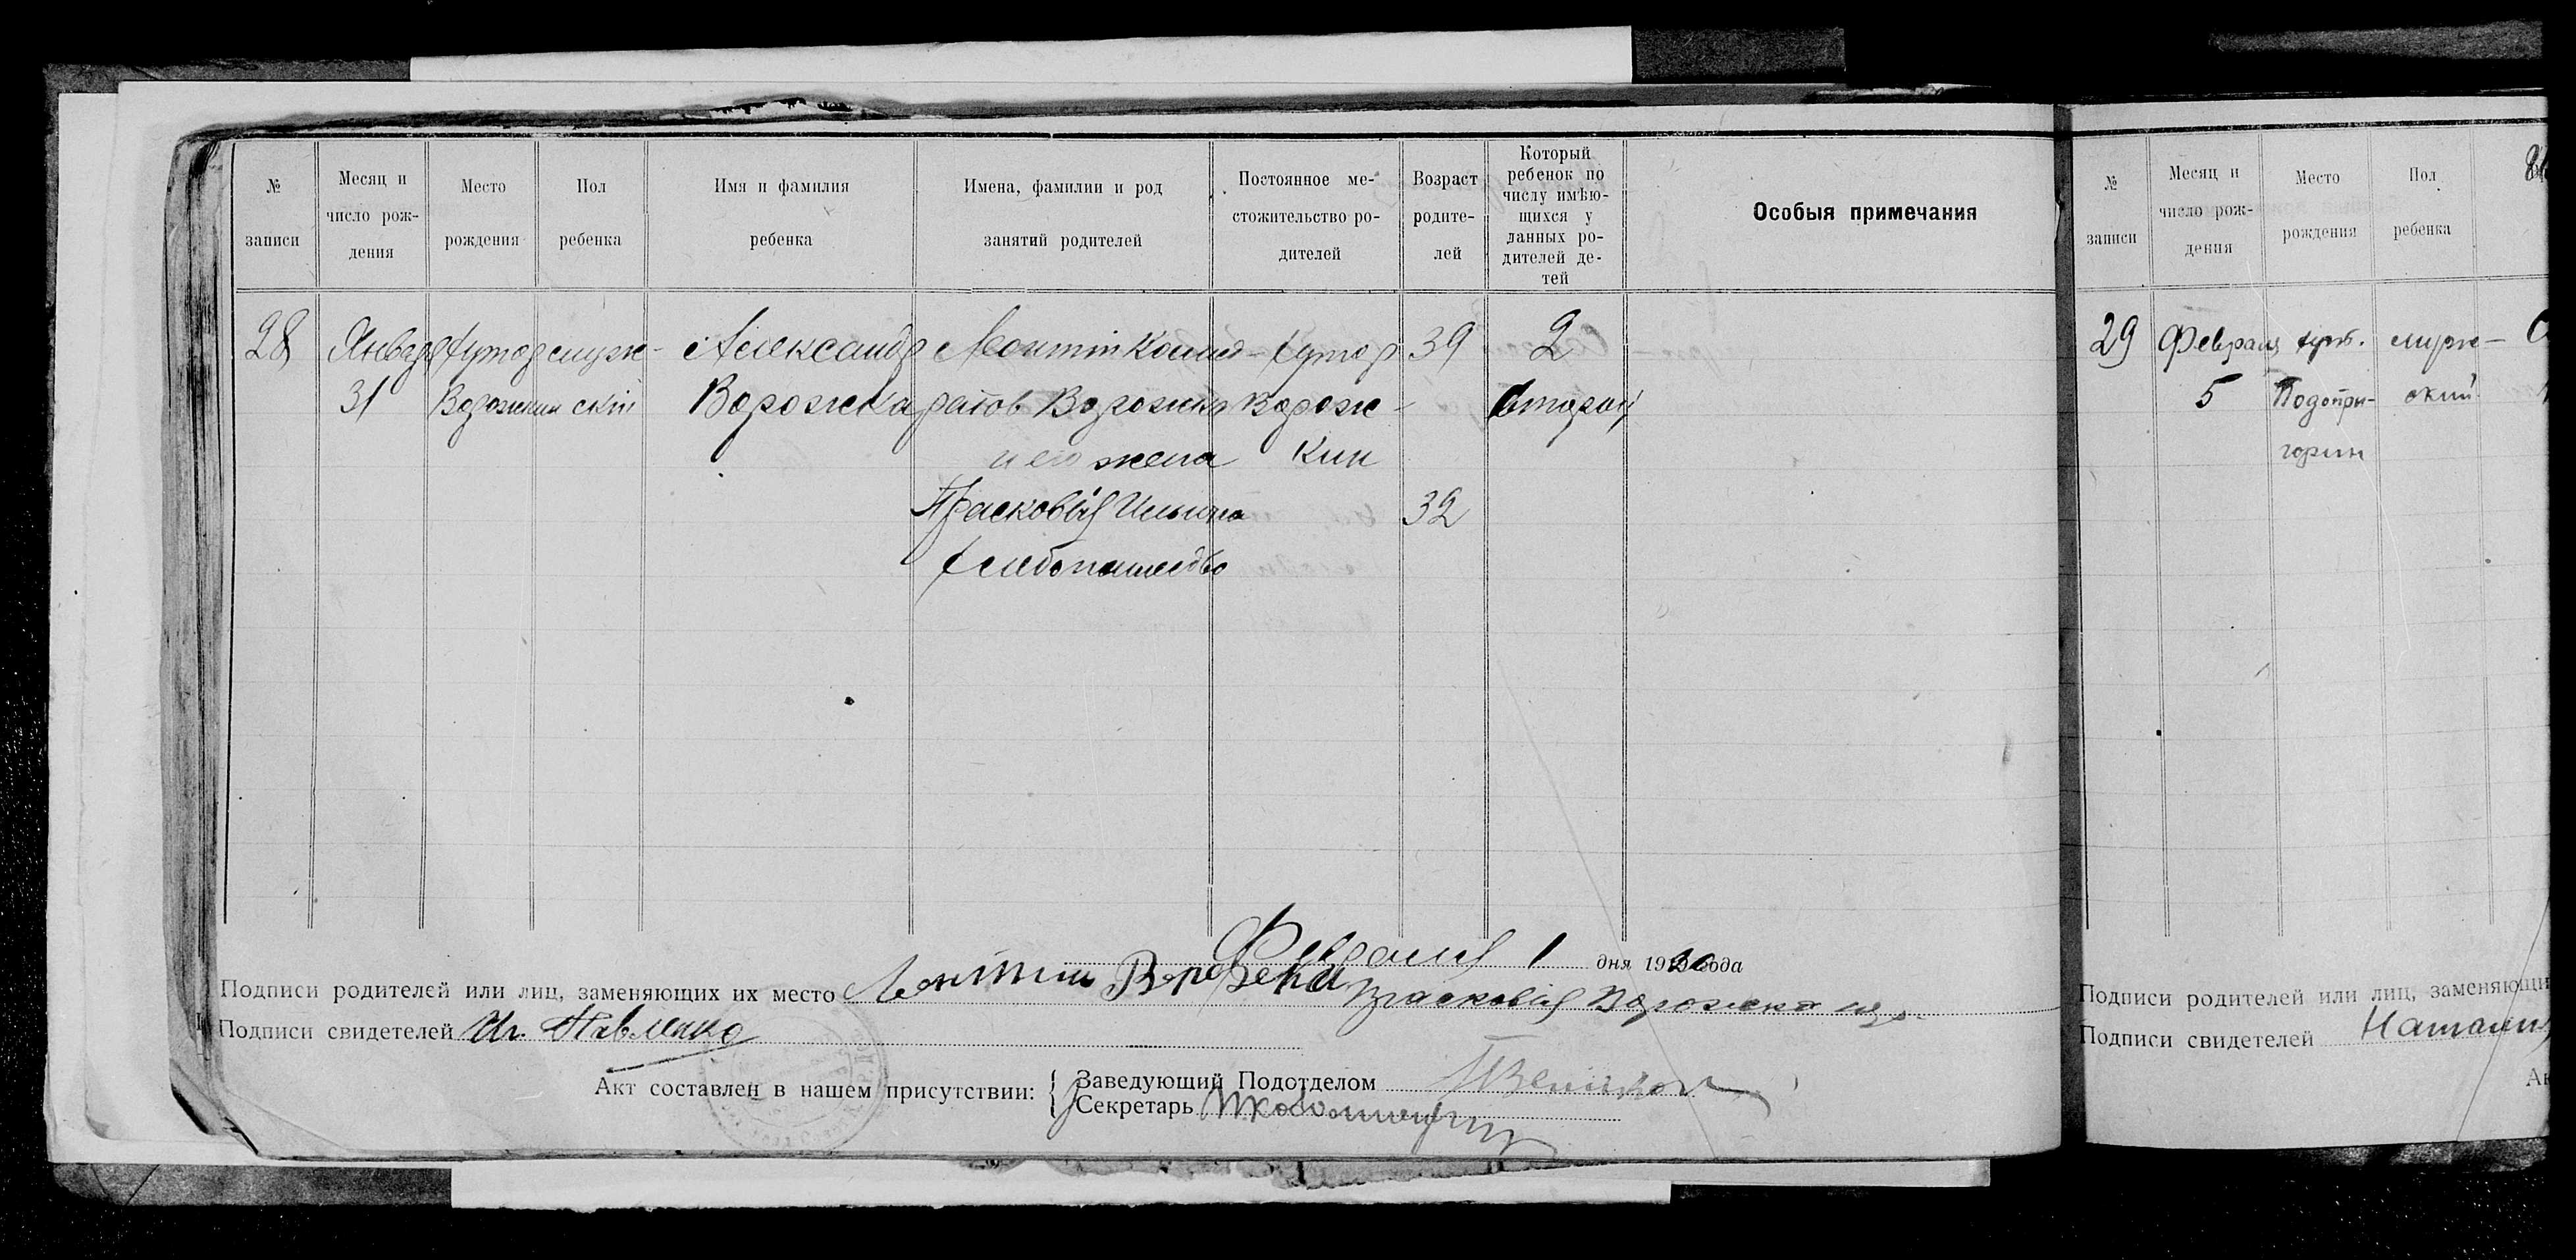 № записи
Месяц и число рождения
Место рождения
Пол ребенка
Имя и фамилия ребенка
Имена, фамилии и род занятий родителей
Постоянное местожительство родителей
Возраст родителей
Который ребенок по числу имѣющихся у данных родителей детей
Особыя примечания
28 Января хутор мужс- Александр Леонтій Конд- хутор 39 2
31 Ворожкин скій Ворожка ратов Ворожка Ворож- второй
и его жена кин
Прасковія Ильина 32
Хлебопашество
Февраля 1 дня 1920 года
Подписи родителей или лиц, заменяющих их место Леонтии Прасковія Ворожка
Подписи свидетелей Ив. Павленко
Акт составлен в нашем присутствии:
Заведующий Подотделом
Секретарь
№ записи
Месяц и число рождения
Место рождения
Пол ребенка
29 Февраля хут. мужс-
5 Подопри- ский
горин
Подписи родителей или лиц, заменяющи
Подписи свидетелей Натали
Ак